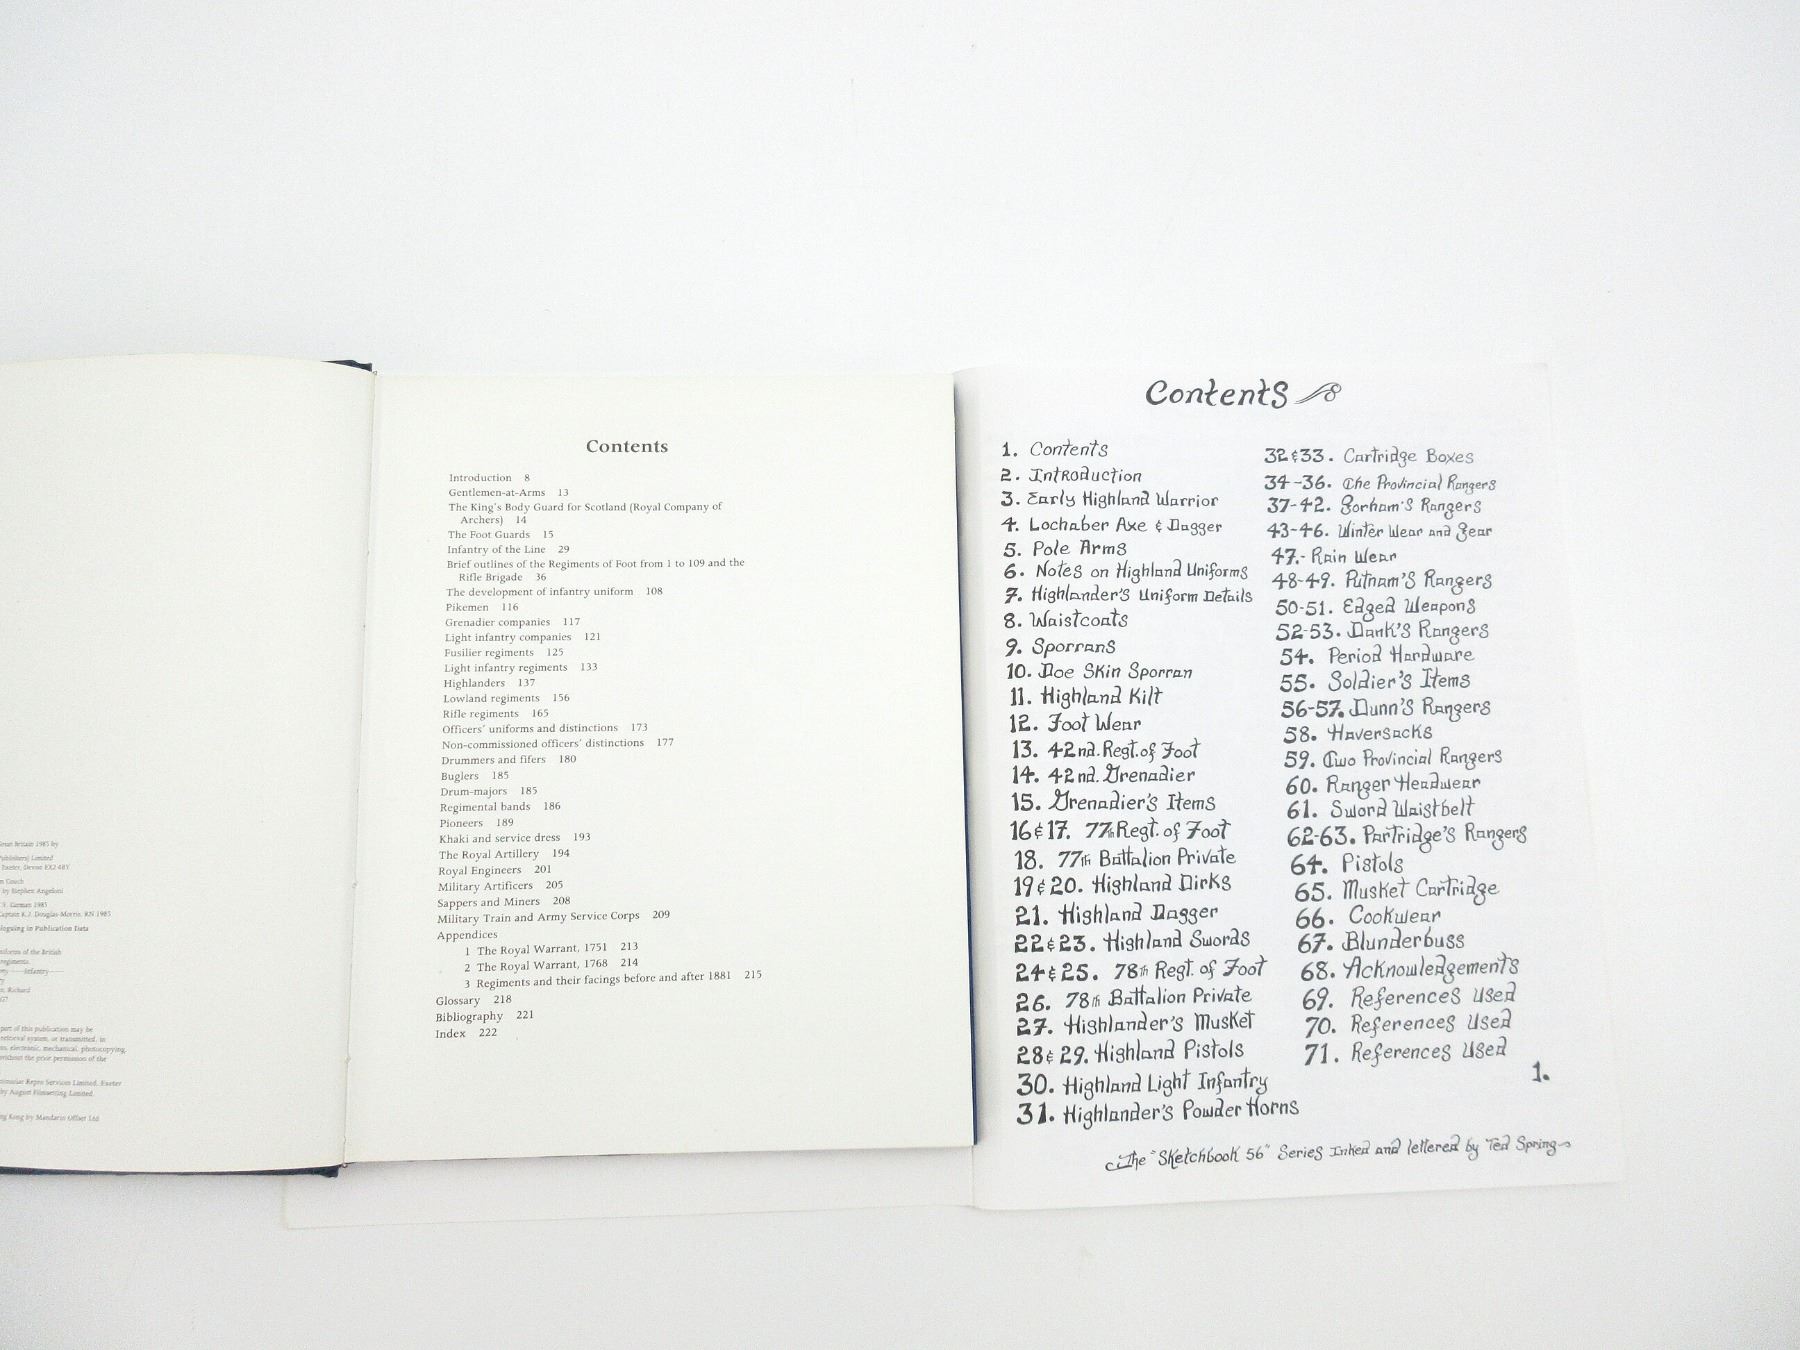 Great Britain 1985 by
Publishers) Limited
Exeter, Devon EX2 4BY
Couch
by Stephen Angeloni
1985
Captain K.J. Douglas-Morris, RN 1985
Cataloguing in Publication Data
uniforms of the British
regiments.
Infantry
Richard
part of this publication may be
retrieval system, or transmitted, in
electronic, mechanical, photocopying,
without the prior permission of the
Repro Services Limited, Exeter
by August Filmsetting Limited,
Kong by Mandarin Offset Ltd
Contents
Introduction 8
Gentlemen-at-Arms 13
The King's Body Guard for Scotland (Royal Company of
Archers) 14
The Foot Guards 15
Infantry of the Line 29
Brief outlines of the Regiments of Foot from 1 to 109 and the
Rifle Brigade 36
The development of infantry uniform 108
Pikemen 116
Grenadier companies 117
Light infantry companies 121
Fusilier regiments 125
Light infantry regiments 133
Highlanders 137
Lowland regiments 156
Rifle regiments 165
Officers' uniforms and distinctions 173
Non-commissioned officers' distinctions 177
Drummers and fifers 180
Buglers 185
Drum-majors 185
Regimental bands 186
Pioneers 189
Khaki and service dress 193
The Royal Artillery 194
Royal Engineers 201
Military Artificers 205
Sappers and Miners 208
Military Train and Army Service Corps 209
Appendices
1 The Royal Warrant, 1751 213
2 The Royal Warrant, 1768 214
3 Regiments and their facings before and after 1881 215
Glossary 218
Bibliography 221
Index 222
Contents
1. Contents
2. Introduction
3. Early Highland Warrior
4. Lochaber Axe & Dagger
5. Pole Arms
6. Notes on Highland Uniforms
7. Highlander's Uniform Details
8. Waistcoats
9. Sporrans
10. Doe Skin Sporran
11. Highland Kilt
12. Foot Wear
13. 42nd. Regt. of Foot
14. 42nd. Grenadier
15. Grenadier's Items
16 & 17. 77th Regt. of Foot
18. 77th Battalion Private
19 & 20. Highland Dirks
21. Highland Dagger
22 & 23. Highland Swords
24 & 25. 78th Regt. of Foot
26. 78th Battalion Private
27. Highlander's Musket
28 & 29. Highland Pistols
30. Highland Light Infantry
31. Highlander's Powder Horns
32 & 33. Cartridge Boxes
34-36. The Provincial Rangers
37-42. Gorham's Rangers
43-46. Winter Wear and Gear
47.- Rain Wear
48-49. Putnam's Rangers
50-51. Edged Weapons
52-53. Dank's Rangers
54. Period Hardware
55. Soldier's Items
56-57. Dunn's Rangers
58. Haversacks
59. Two Provincial Rangers
60. Ranger Headwear
61. Sword Waistbelt
62-63. Partridge's Rangers
64. Pistols
65. Musket Cartridge
66. Cookwear
67. Blunderbuss
68. Acknowledgements
69. References Used
70. References Used
71. References Used
1.
The "Sketchbook 56" Series Inked and lettered by Ted Spring